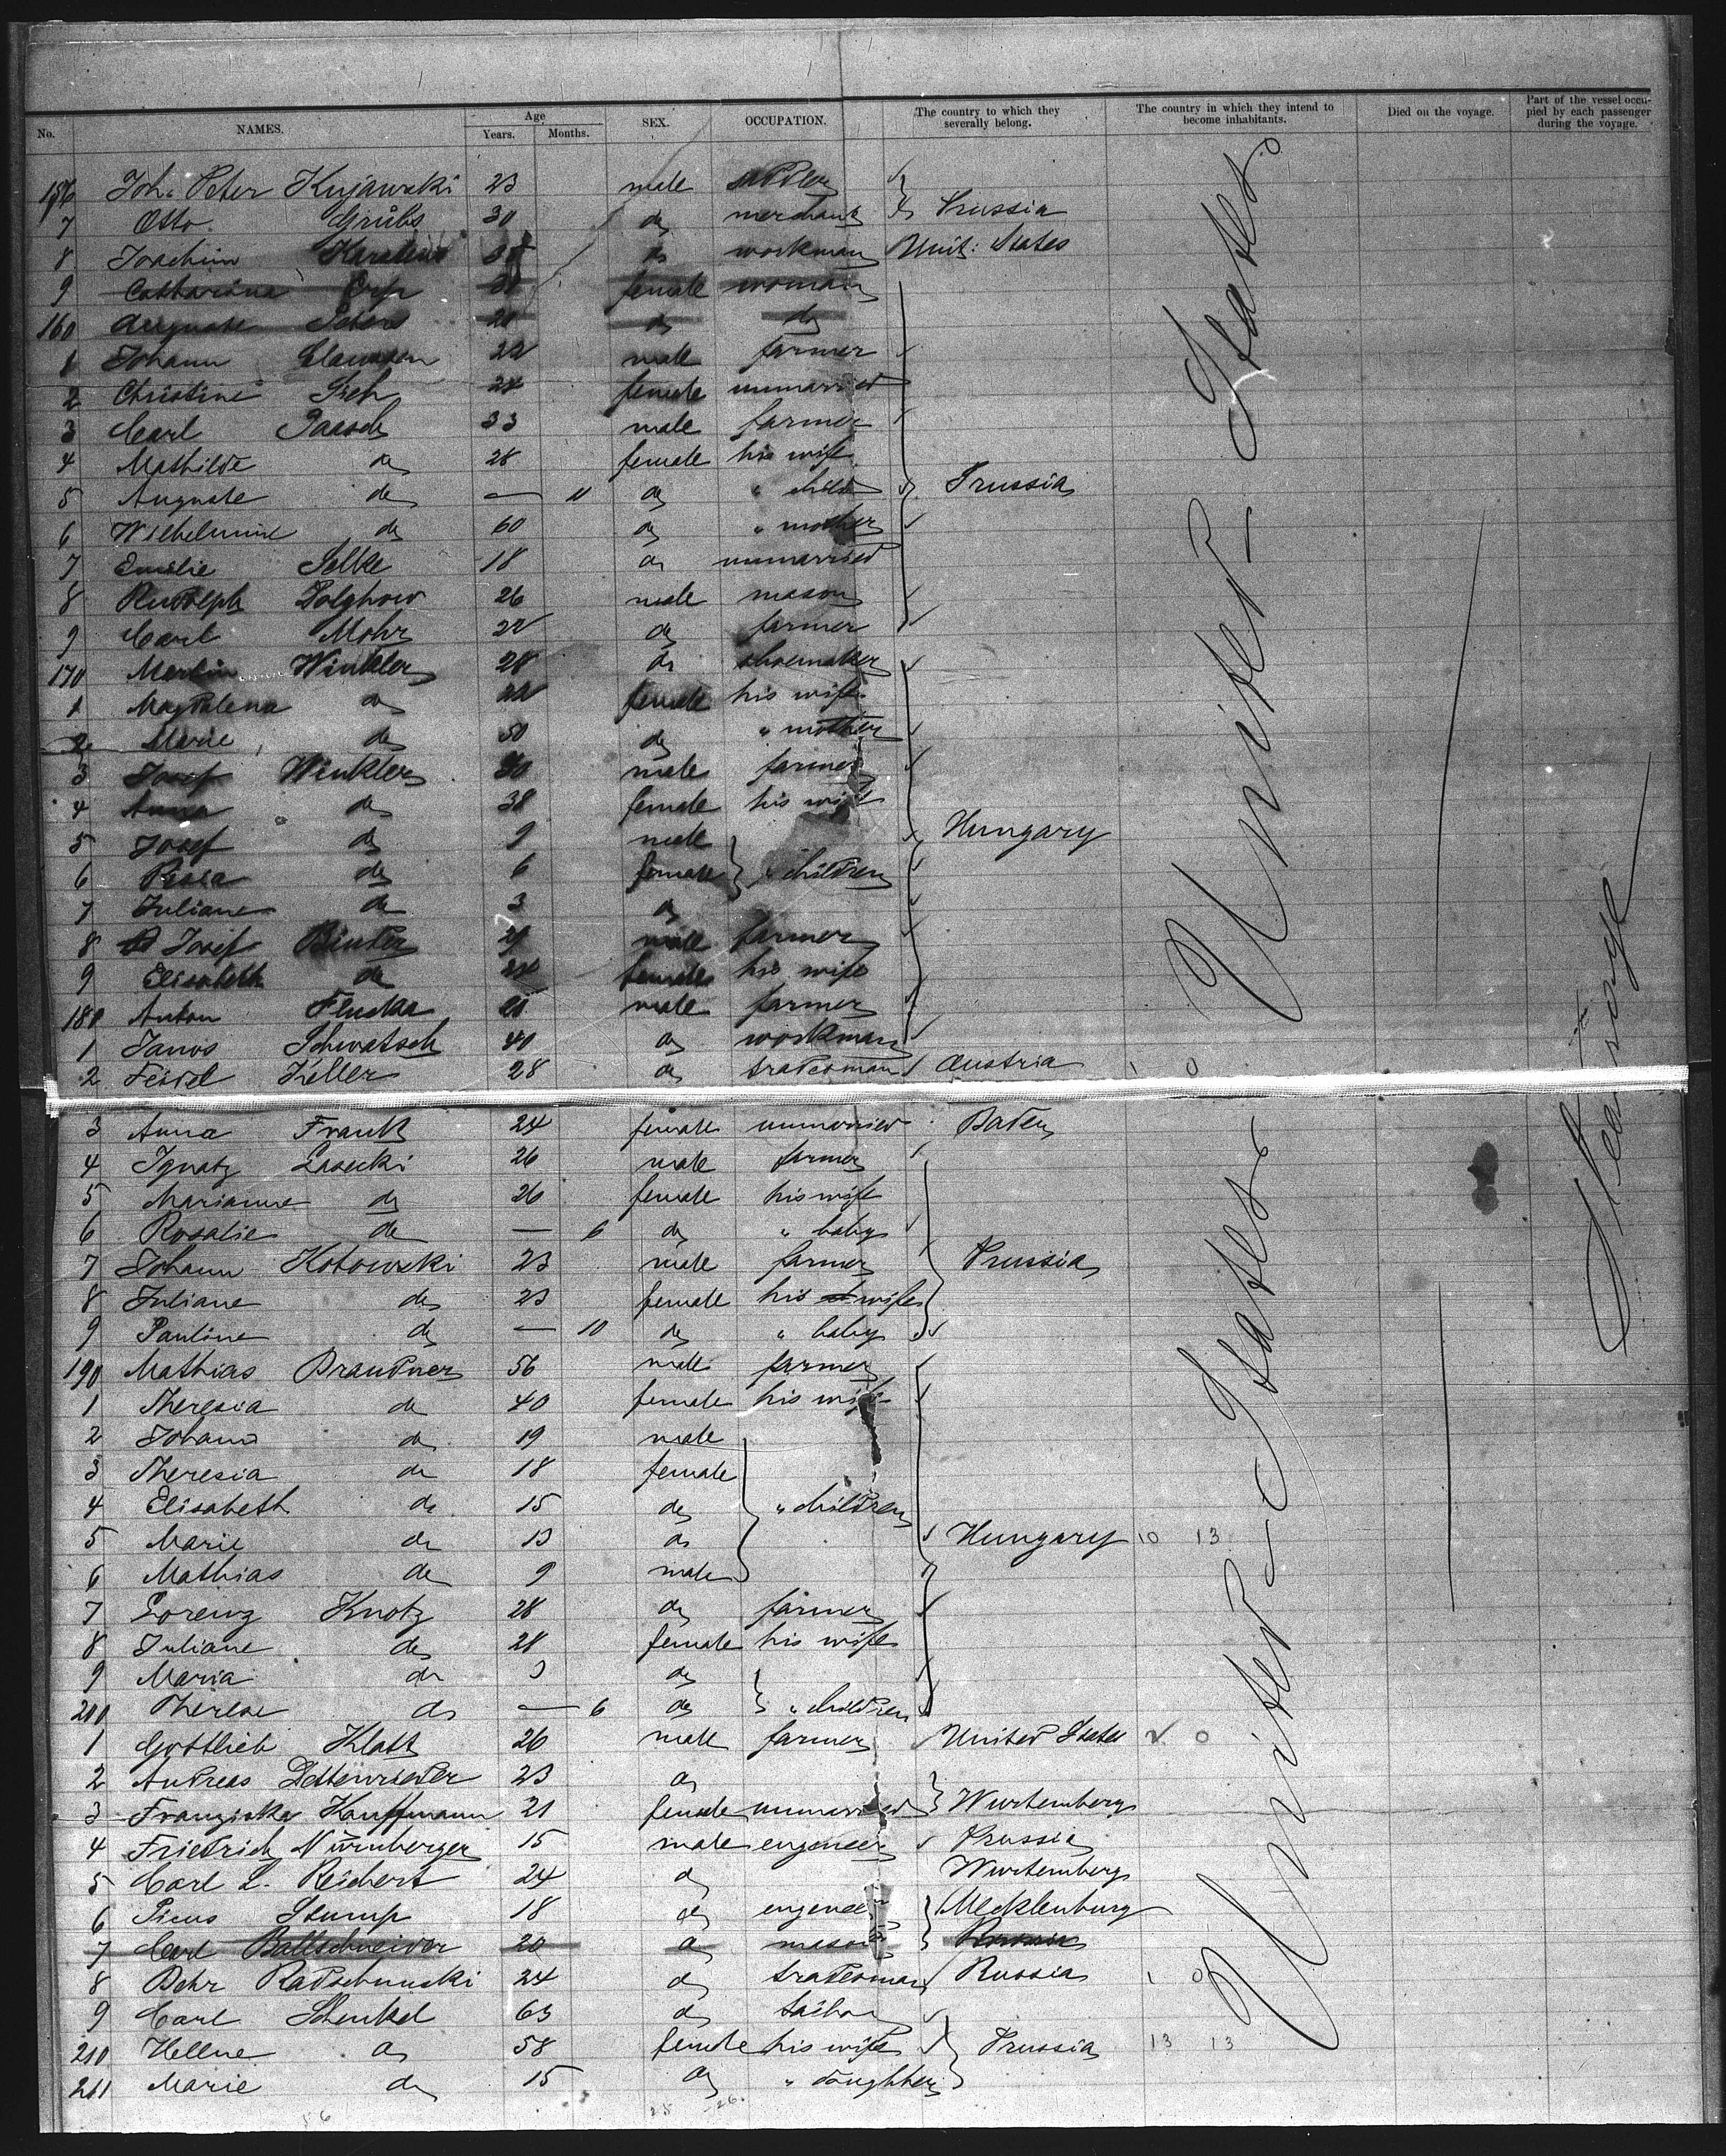 No. NAMES. Age Years. Months. SEX. OCCUPATION. The country to which they severally belong. The country in which they intend to become inhabitants. Died on the voyage. Part of the vessel occupied by each passenger during the voyage.
156 Joh. Peter Kujawski 23 male
7 Otto Grübs 30 do merchant } Prussia
8 Joachim do workman Unit: States
9 Catharina female woman
160 Auguste Peters do do
1 Johann Claussen 22 male farmer
2 Christine 24 female unmarried
3 Carl Paasch 33 male farmer
4 Mathilde do 28 female his wife
5 Auguste do — 11 do " child Prussia
6 Wilhelmine do 60 do " mother
7 Emilie Selke 18 do unmarried
8 Rudolph 26 male mason
9 Carl Mohr 22 do farmer
170 Martin Winkler 28 do shoemaker
1 Magdalena do 22 female his wife
2 Marie do 50 do " mother
3 Josef Winkler 30 male farmer
4 Anna do 38 female his wife
5 Josef do 9 male Hungary
6 do 6 female } " children
7 Juliane do 3 do
8 Josef Binder male farmer
9 Elisabeth do 24 female his wife
180 Anton male farmer
1 Janos Schwatsch 40 do workman
2 Feidel Keller 28 do tradesman Austria 1 0
3 Anna Frank 24 female unmarried Baden
4 Ignatz Lasecki 26 male farmer
5 Marianne do 26 female his wife
6 Rosalie do — 6 do " baby
7 Johann Kotowski 23 male farmer Prussia
8 Juliane do 23 female his wife
9 Pauline do — 10 do " baby
190 Mathias Braudner 56 male farmer
1 Theresia do 40 female his wife
2 Johann do 19 male
3 Theresia do 18 female
4 Elisabeth do 15 do " children
5 Marie do 13 do Hungary 10 13
6 Mathias do 9 male
7 Lorenz Knotz 28 do farmer
8 Juliane do 28 female his wife
9 Maria do 3 do
200 Therese do — 6 do } " children
1 Gottlieb Klatt 26 male farmer United States 0
2 Andreas Dettenrieder 23 do
3 Franziska Kauffmann 21 female unmarried } Wurtemberg
4 Friedrich Nürnberger 15 male engeneer Prussia
5 Carl L. Reichert 24 do Wurtemberg
6 Pius Stump 18 do engeneer Mecklenburg
7 Carl Baltschneider 20 do mason
8 Behr Radschunski 24 do tradesman Russia 1 0
9 Carl Schenkel 63 do tailor
210 Hellne do 58 female his wife } Prussia 13 13
211 Marie do 15 do " daughter
United States
United States
Steerage